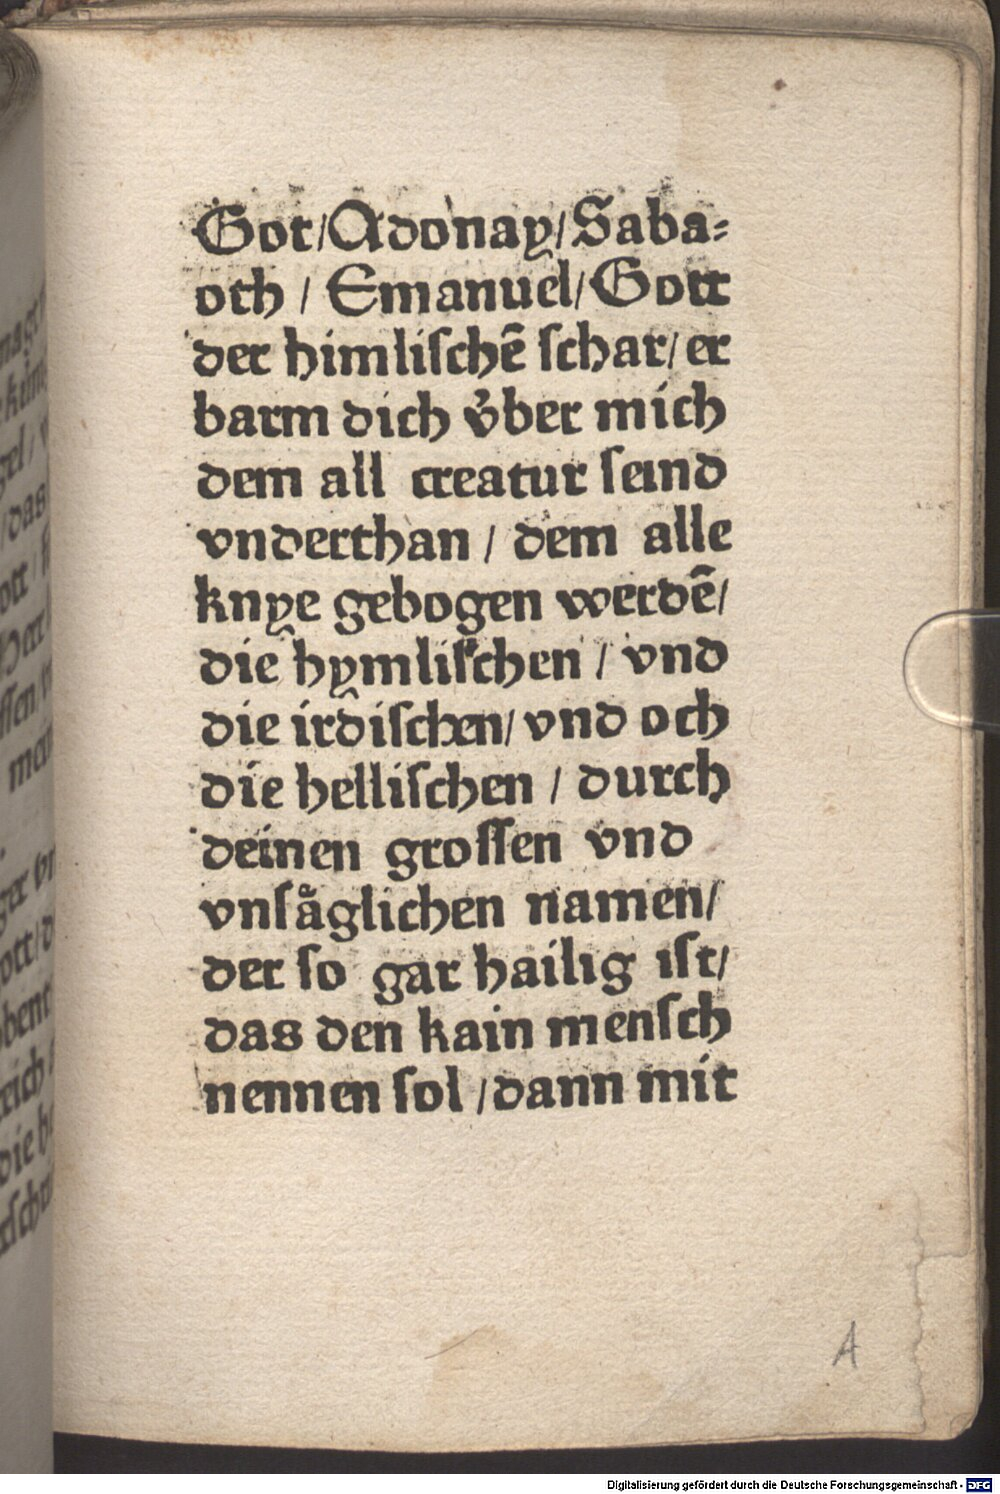 Got/Adonay/Saba⸗
oth / Emanuel/Gott
der himlischē schar/er
barm dich vͤber mich
dem all creatur seind
vnderthan / dem alle
knye gebogen werdē/
die hymlischen / vnd
die irdischen/vnd och
die hellischen / durch
deinen grossen vnd
vnsåglichen namen/
der so gar hailig ist/
das den kain mensch
nennen sol /dann mit
A
Digitalisierung gefördert durch die Deutsche Forschungsgemeinschaft - DFG